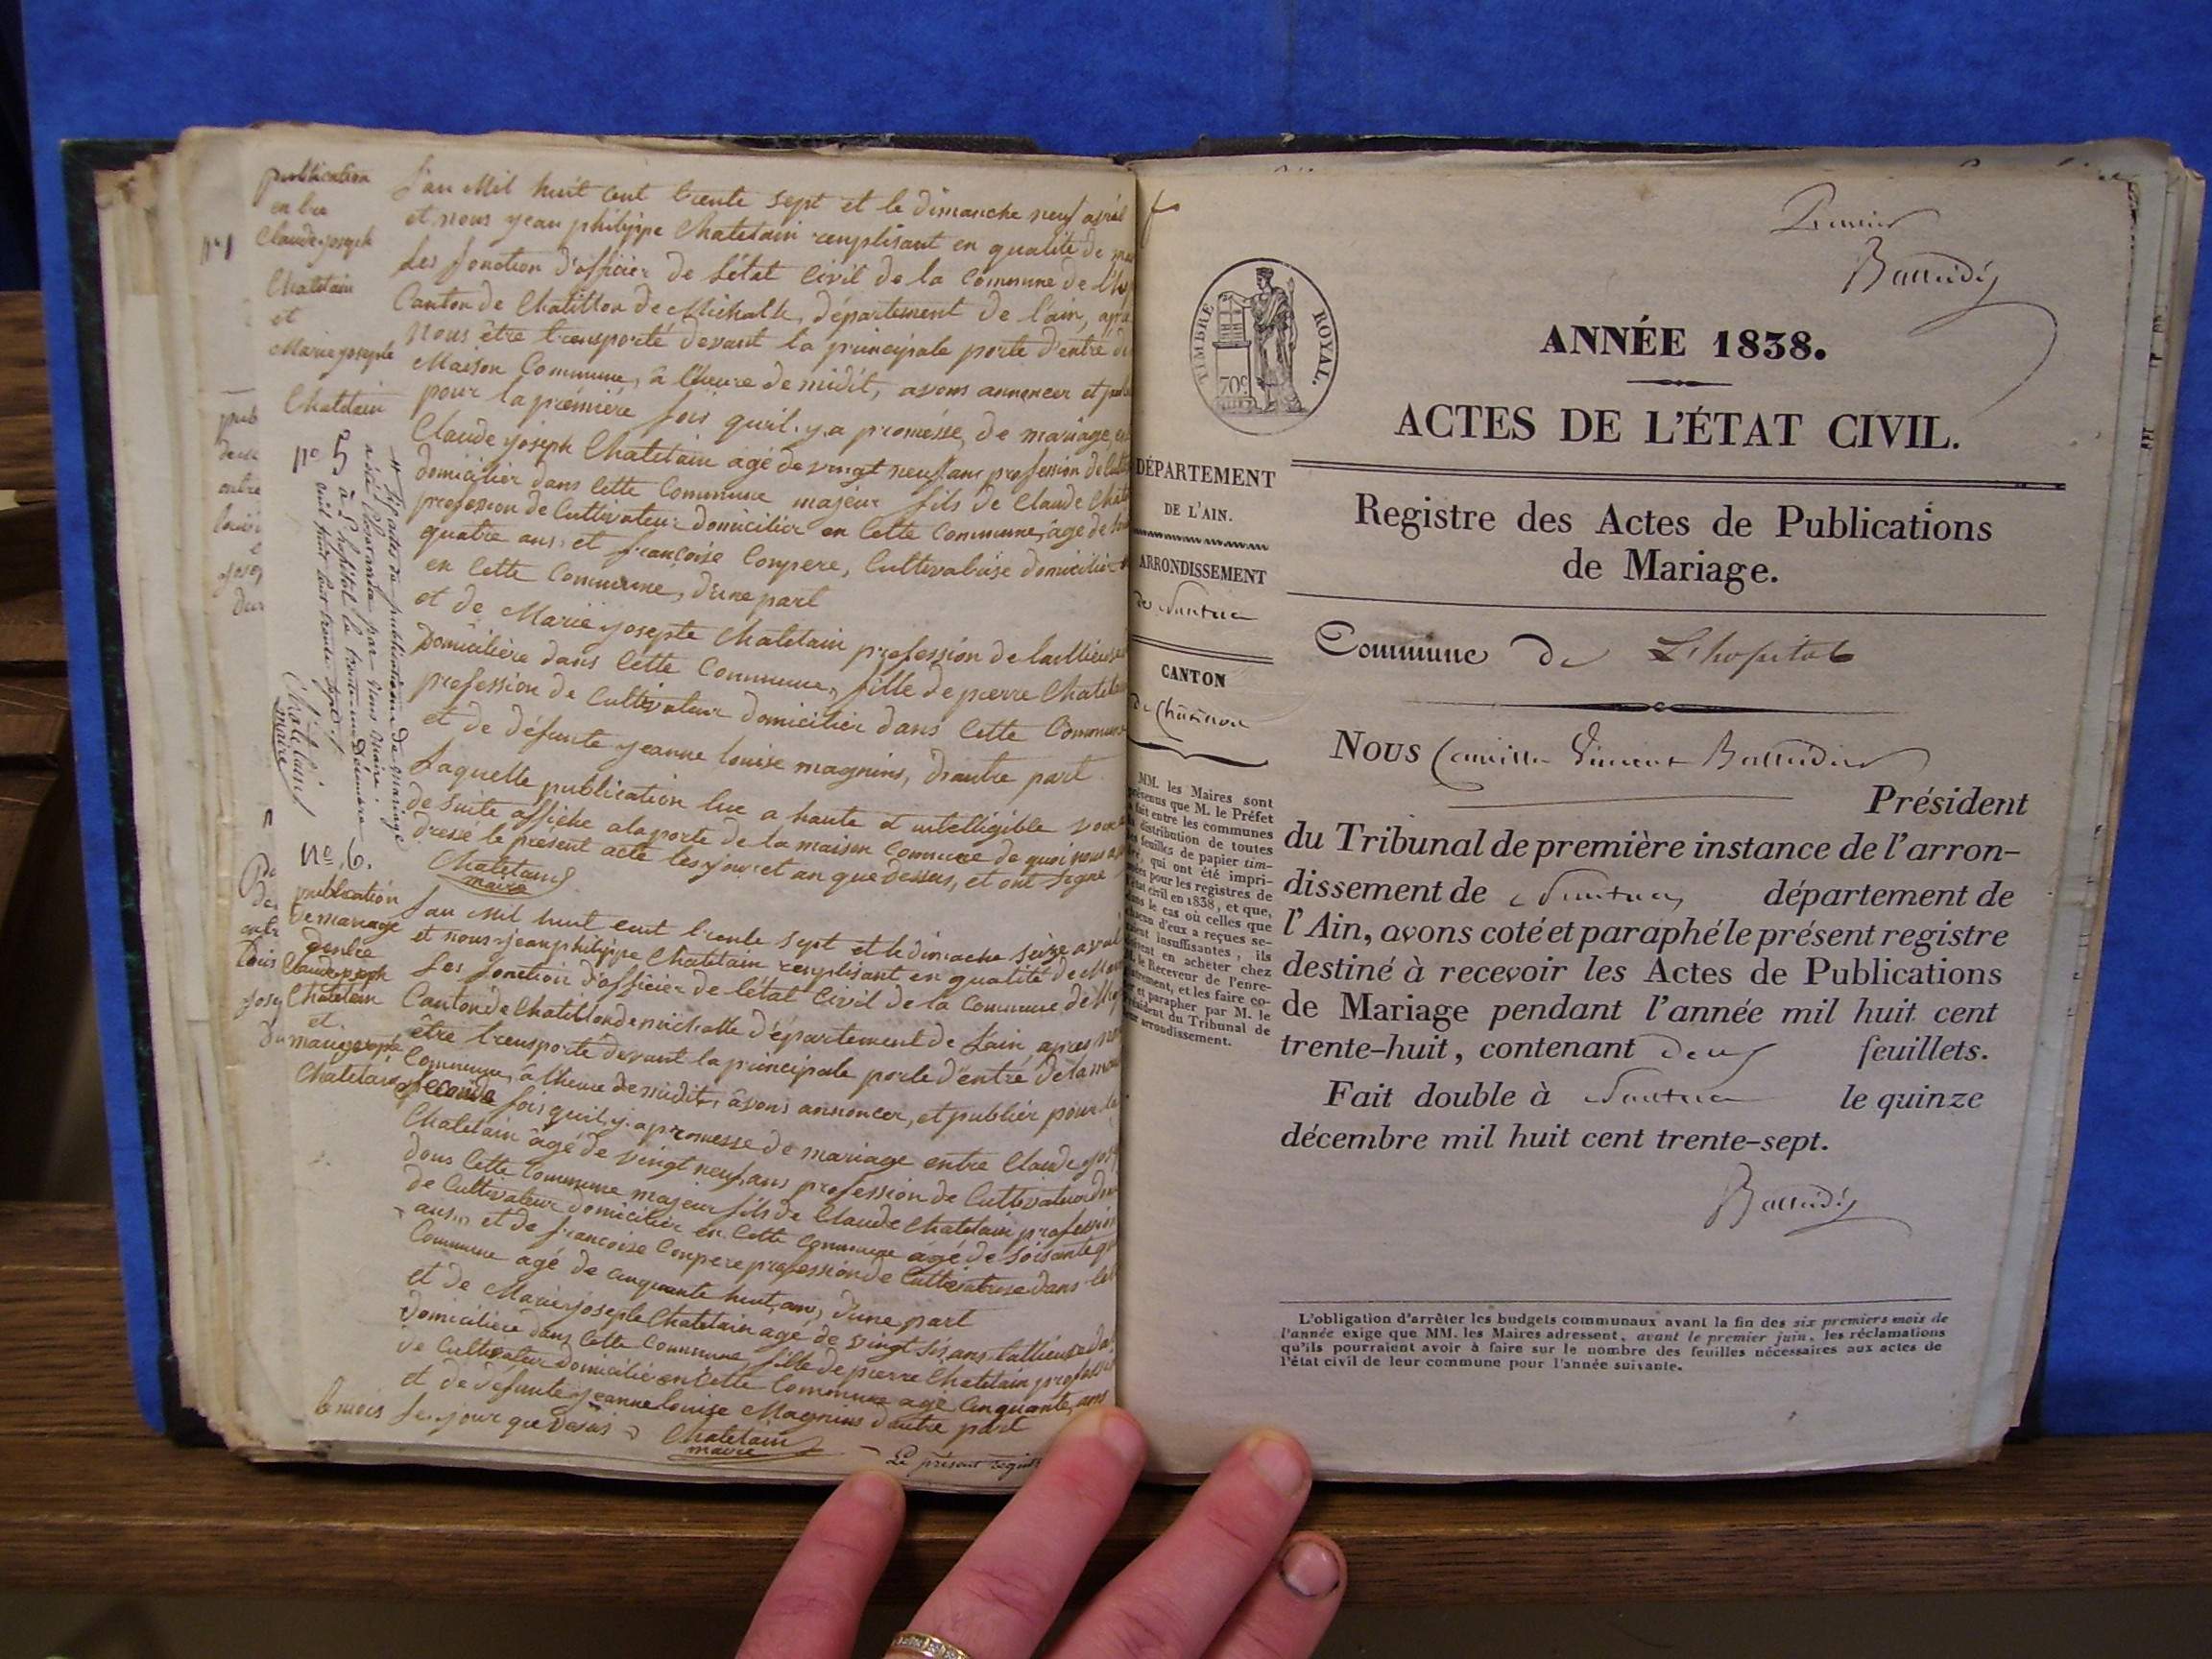 publication
entre
Claude joseph
Chatelain
et
Marie josephe
Chatelain
n° 5
L'an Mil huit cent trente sept et le dimanche neuf avril
et nous jean philippe Chatelain remplisant en qualité de
Les fonction d'officier de L'état Civil de la Commune de
Canton de Chatillon de Michalle, département de l'ain,
nous être transporté devant la principale porte d'entré
Maison Commune, à l'heure de midit, avons annoncer et
pour la prémiére fois quil y a promésse, de mariage
Claude joseph Chatelain agé de vingt neuf ans profession de
domicilier dans Cette Commune majeur fils de Claude
profession de Cultivateur domicilier en Cette Commune, âgé de
quatre ans, et françoise Conpere, Cultivatrise domiciliée
en Cette Commune, d'une part
et de Marie josephe Chatelain profession de
Domicilière dans Cette Commune, fille de pierre
profession de Cultivateur Domicilier dans Cette Commune
et de défunte jeanne louise magnins, d'autre part
Laquelle publication lue a haute et intelligible
de suite affiche a la porte de la maison Commune de quoi nous
dressé le présent acte les jour et an que dessus, et ont signé
Chatelain
maire
n° 6.
publication
de mariage
d'entre
Claude joseph
Chatelain
et
marie josephe
Chatelain
L'an mil huit cent trente sept et le dimanche seize avril
et nous jean philippe Chatelain remplisant en qualité de
Les fonction d'officier de l'état Civil de la Commune de
Canton de Chatillon de michalle département de L'ain après
être transporté devant la principale porte d'entré de la
Commune, à l'heure de midit, avons annoncer, et publier pour la
seconde fois quil y a promesse de mariage entre Claude
Chatelain âgé de vingt neuf ans profession de Cultivateur
dans Cette Commune majeur fils de Claude Chatelain profession
de Cultivateur domicilier en Cette Commune âgé de soisante
ans, et de françoise Conpere profession de Cultivatrise dans
Commune agé de cinquante huit ans, d'une part
et de Marie josephe Chatelain age de vingt six ans
Domicilière dans Cette Commune fille de pierre Chatelain
de Cultivateur domicilié en Cette Commune agé Cinquante ans
et de defunte jeanne louise Magnins d'autre part
le mois les jour que desus
Chatelain
maire
Le présent
Premier
TIMBRE ROYAL.
70c
ANNÉE 1838.
ACTES DE L'ÉTAT CIVIL.
DÉPARTEMENT
DE L'AIN.
ARRONDISSEMENT
de Nantua
CANTON
de Chatillon
Registre des Actes de Publications
de Mariage.
Commune de L'hopital
Nous Camille Vincent
Président
du Tribunal de première instance de l'arron-
dissement de Nantua département de
l'Ain, avons coté et paraphé le présent registre
destiné à recevoir les Actes de Publications
de Mariage pendant l'année mil huit cent
trente-huit, contenant deux feuillets.
Fait double à Nantua le quinze
décembre mil huit cent trente-sept.
MM. les Maires sont
prévenus que M. le Préfet
a fait entre les communes
la distribution de toutes
les feuilles de papier tim-
bré, qui ont été impri-
mées pour les registres de
l'état civil en 1838, et que,
dans le cas où celles que
chacun d'eux a reçues se-
raient insuffisantes, ils
devront en acheter chez
le Receveur de l'enre-
gistrement, et les faire co-
ter et parapher par M. le
Président du Tribunal de
leur arrondissement.
L'obligation d'arrêter les budgets communaux avant la fin des six premiers mois de
l'année exige que MM. les Maires adressent, avant le premier juin, les réclamations
qu'ils pourraient avoir à faire sur le nombre des feuilles nécessaires aux actes de
l'état civil de leur commune pour l'année suivante.